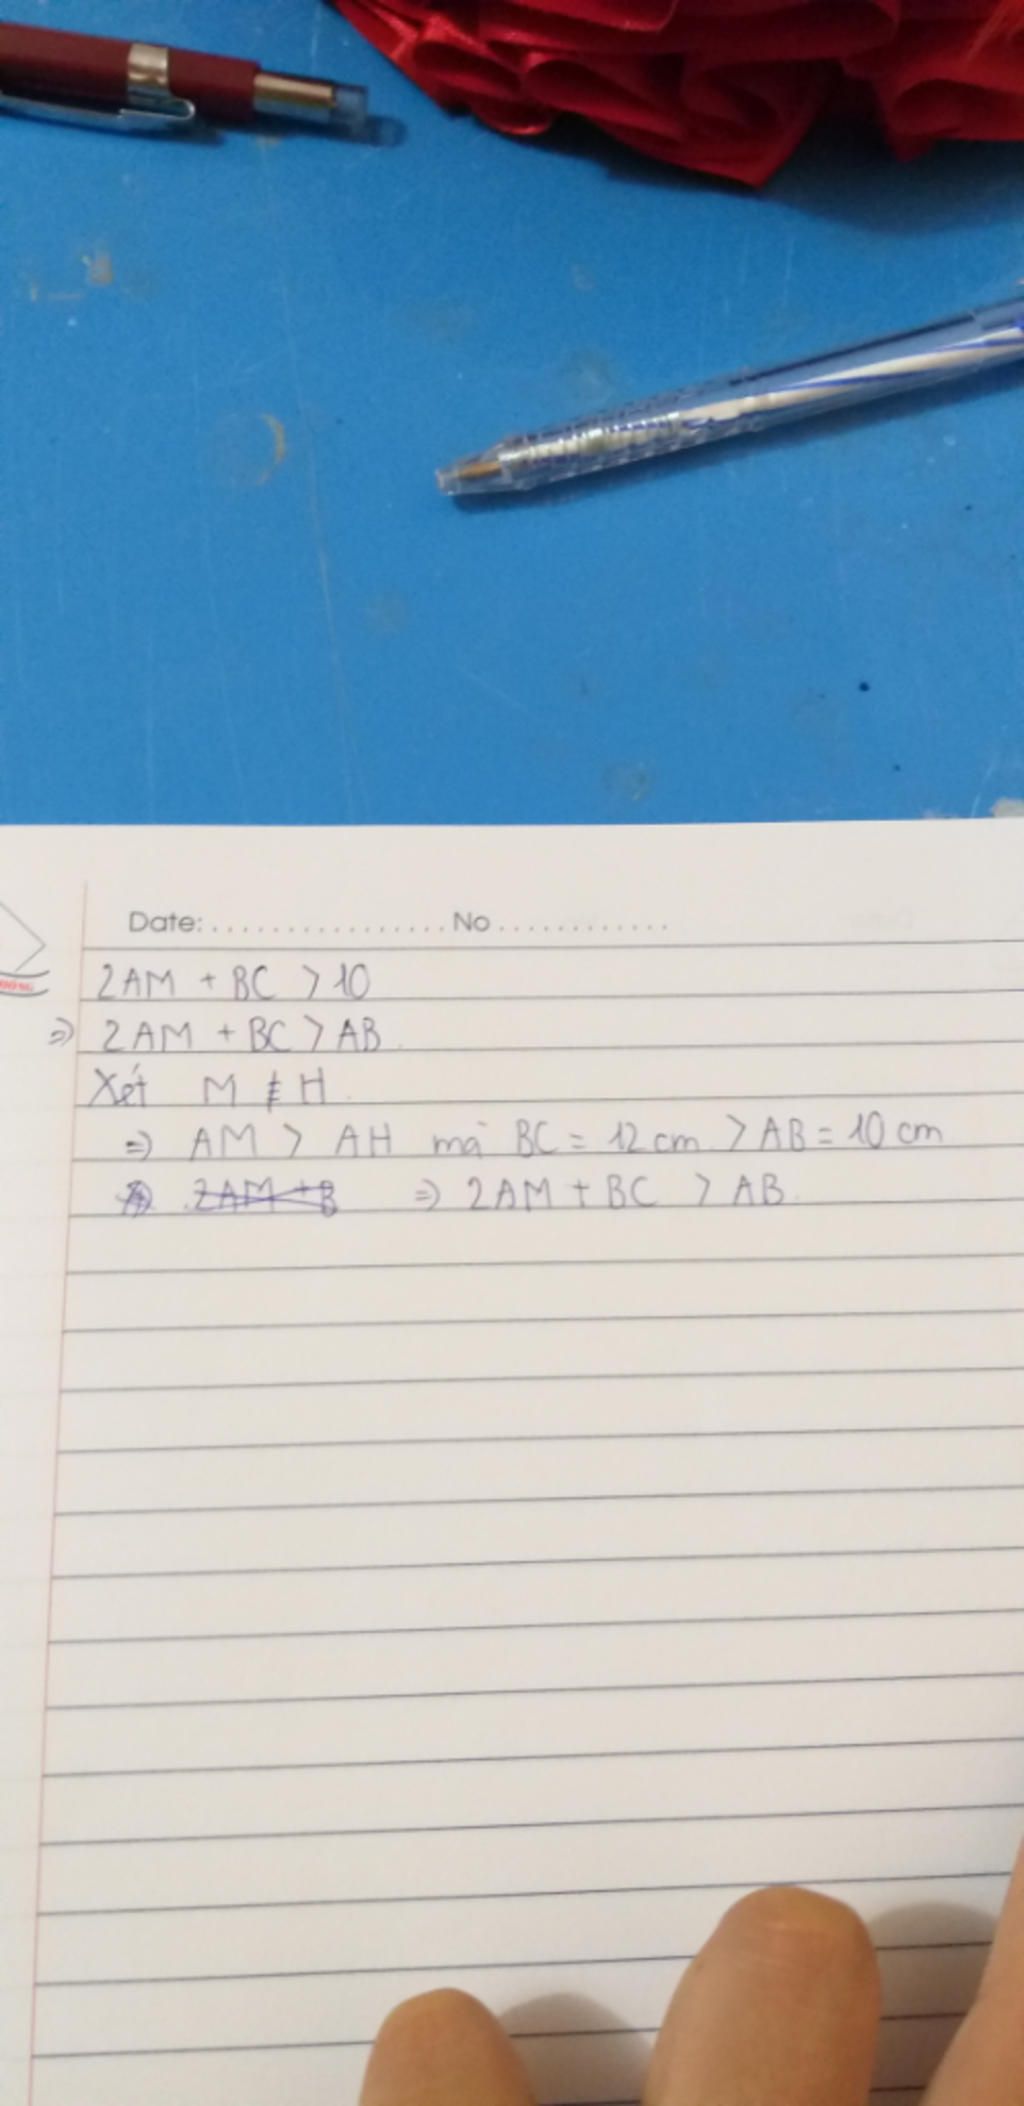 Date: ................. No ............
2AM + BC > 10
=> 2AM + BC > AB.
Xét M ≢ H.
=> AM > AH mà BC = 12 cm > AB = 10 cm
=> 2AM + B => 2AM + BC > AB.